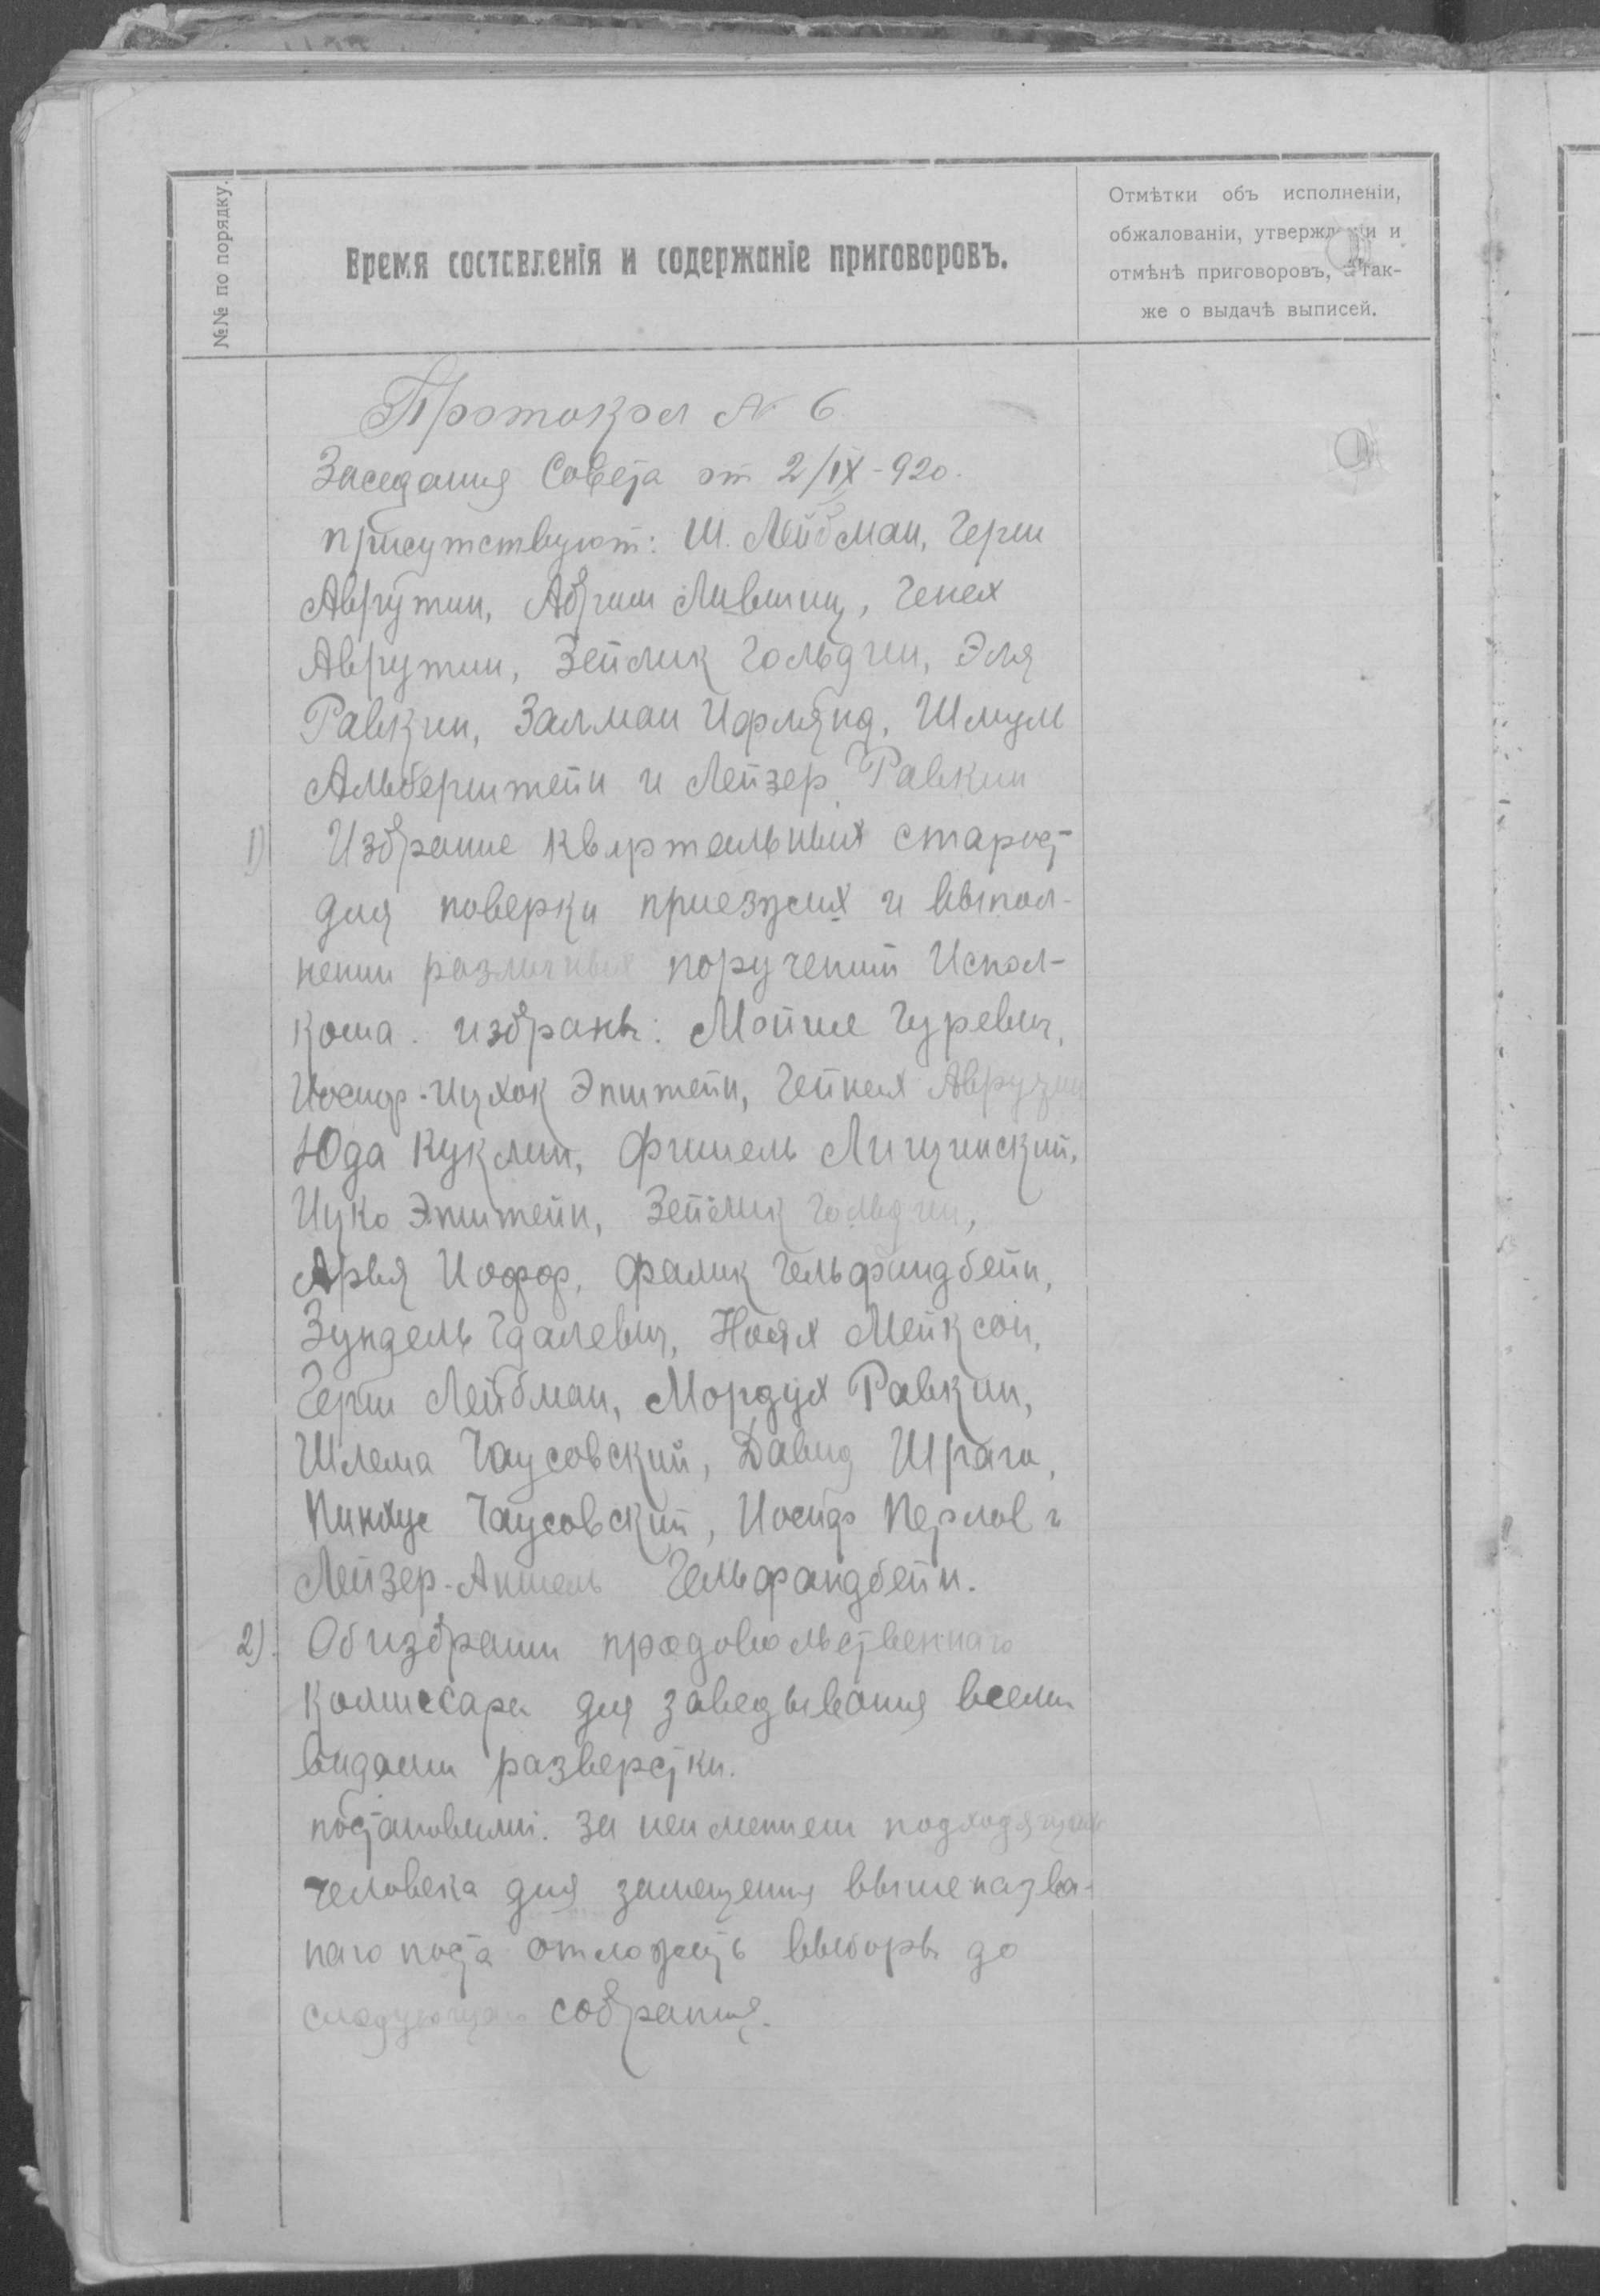 №№ по порядку.
Время составленія и содержаніе приговоровъ.
Отмѣтки объ исполненіи,
обжалованіи, утвержденіи и
отмѣнѣ приговоровъ, а так-
же о выдачѣ выписей.
Протокол № 6.
Заседания Совета от 2/IX-920.
присутствуют: Ш. Лейбман, Герш
Аврутин, Абрам Лившиц, Генех
Аврутин, Зейлик Гольдин, Эля
Равкин, Залман Ифлянд, Шмуль
Альберштейн и Лейзер Равкин
1) Избрание квартальных старост
для поверки приезжих и выпол-
нении различных поручений Испол-
кома. избраны: Мойше Гуревич,
Иосиф-Ицхок Эпштейн, Гейнех Аврутин
Юда Куклин, Фишель Лищинский,
Ицко Эпштейн, Зейлик Гольдин,
Арья Иофф, Фалик Гельфандбейн,
Зундель Гдалевич, Ноях Мейксон,
Герш Лейбман, Мордух Равкин,
Шлема Чаусовский, Давид Шрага,
Пинхус Чаусовский, Иосиф Перлов и
Лейзер-Аншель Гельфандбейн.
2). Об избрании продовольственнаго
комиссара для заведывания всеми
видами разверстки.
постановили: за неимением подходящаго
человека для замещения вышеназва-
наго поста отложить выборы до
следующаго собрания.